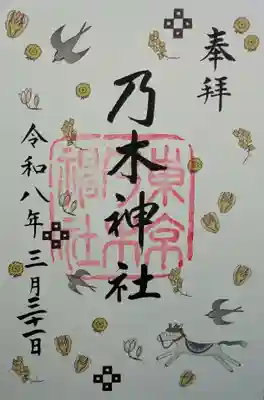 奉拝
乃木神社
東京
乃木
神社
令和八年 三月三十一日